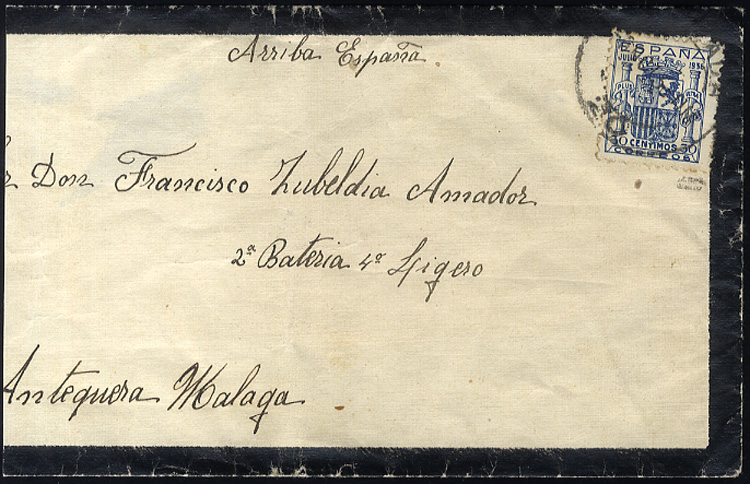 Arriba España
ESPAÑA
JULIO 1936
PLUS
30 CENTIMOS 30
CORREOS
Don Francisco Zubeldia Amador
2ª Bateria 4º Ligero
Antequera Malaga